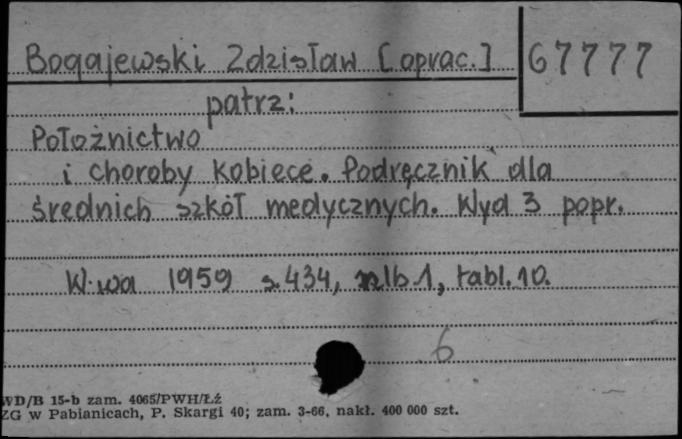 Bogajewski Zdzisław [oprac.] 67777
patrz:
Położnictwo
i choroby kobiece. Podręcznik dla
średnich szkół medycznych. Wyd 3 popr.
W-wa 1959 s. 434, nlb 1, tabl. 10.
6
WD/B 15-b zam. 4065/PWH/Łż
ZG w Pabianicach, P. Skargi 40; zam. 3-66, nakł. 400 000 szt.